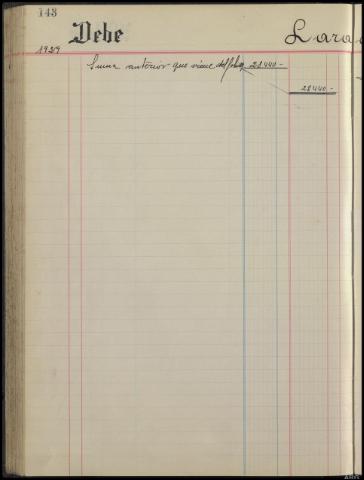 143
Debe Lara
1929
Suma anterior que viene del folio 28440-
28440-